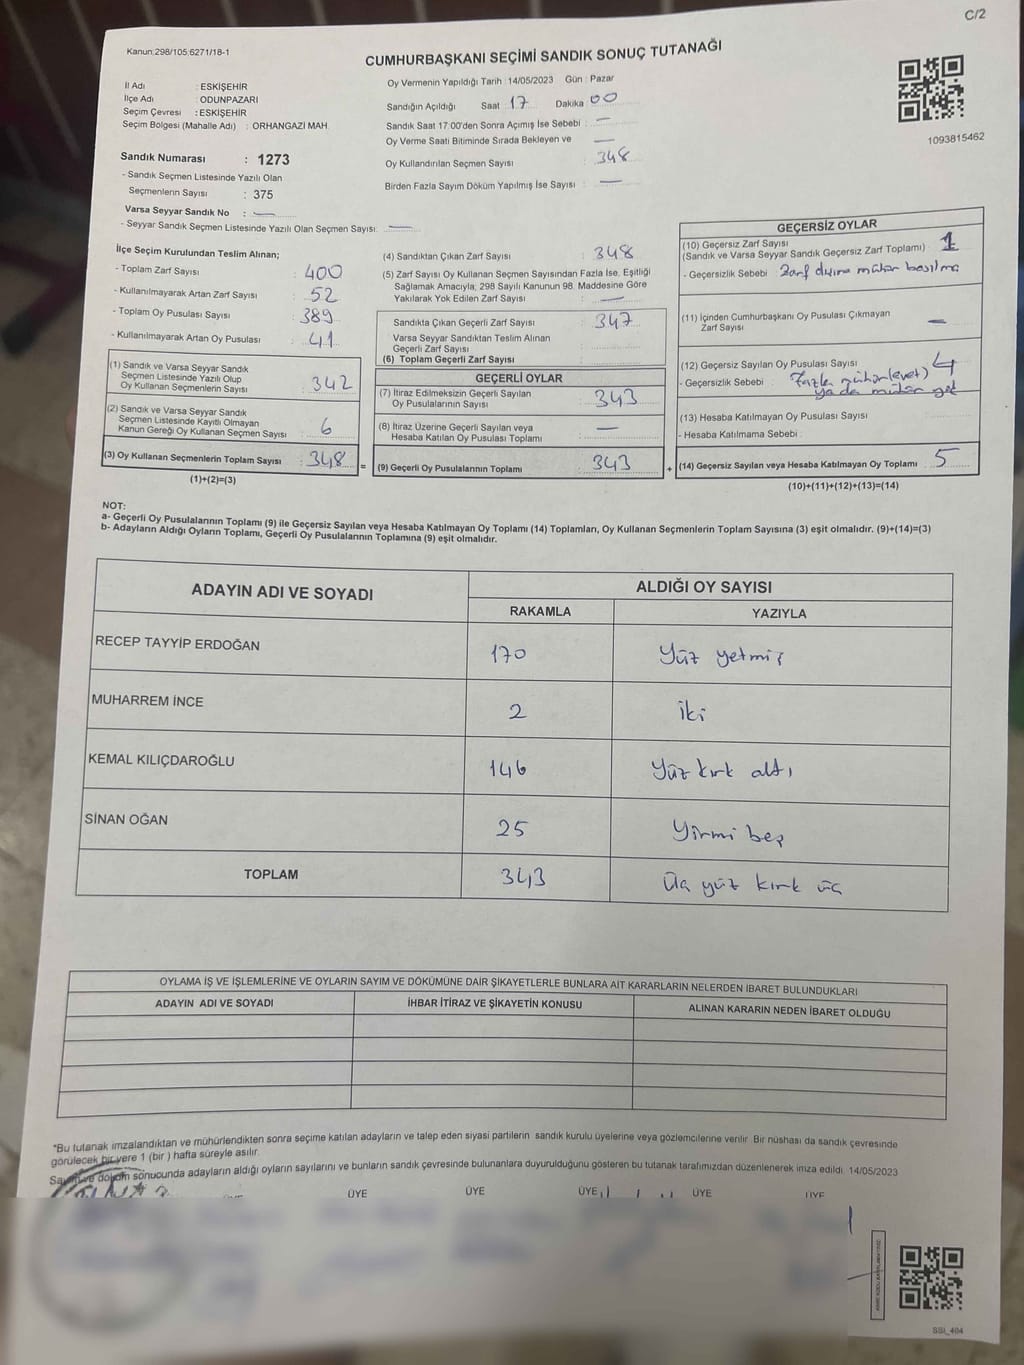 C/2
Kanun:298/105,6271/18-1
CUMHURBAŞKANI SEÇİMİ SANDIK SONUÇ TUTANAĞI
İl Adı : ESKİŞEHİR
İlçe Adı : ODUNPAZARI
Seçim Çevresi : ESKİŞEHİR
Seçim Bölgesi (Mahalle Adı) : ORHANGAZİ MAH.
Sandık Numarası : 1273
- Sandık Seçmen Listesinde Yazılı Olan
Seçmenlerin Sayısı : 375
Varsa Seyyar Sandık No : —
- Seyyar Sandık Seçmen Listesinde Yazılı Olan Seçmen Sayısı: —
Oy Vermenin Yapıldığı Tarih : 14/05/2023 Gün : Pazar
Sandığın Açıldığı Saat : 17 Dakika : 00
Sandık Saat 17:00'den Sonra Açılmış İse Sebebi : —
Oy Verme Saati Bitiminde Sırada Bekleyen ve —
Oy Kullandırılan Seçmen Sayısı : 348
Birden Fazla Sayım Döküm Yapılmış İse Sayısı : —
1093815462
İlçe Seçim Kurulundan Teslim Alınan;
- Toplam Zarf Sayısı : 400
- Kullanılmayarak Artan Zarf Sayısı : 52
- Toplam Oy Pusulası Sayısı : 389
- Kullanılmayarak Artan Oy Pusulası : 41
(1) Sandık ve Varsa Seyyar Sandık
Seçmen Listesinde Yazılı Olup
Oy Kullanan Seçmenlerin Sayısı : 342
(2) Sandık ve Varsa Seyyar Sandık
Seçmen Listesinde Kayıtlı Olmayan
Kanun Gereği Oy Kullanan Seçmen Sayısı : 6
(3) Oy Kullanan Seçmenlerin Toplam Sayısı : 348
(1)+(2)=(3)
(4) Sandıktan Çıkan Zarf Sayısı : 348
(5) Zarf Sayısı Oy Kullanan Seçmen Sayısından Fazla İse, Eşitliği
Sağlamak Amacıyla, 298 Sayılı Kanunun 98. Maddesine Göre
Yakılarak Yok Edilen Zarf Sayısı : —
Sandıkta Çıkan Geçerli Zarf Sayısı : 347
Varsa Seyyar Sandıktan Teslim Alınan
Geçerli Zarf Sayısı :
(6) Toplam Geçerli Zarf Sayısı :
GEÇERLİ OYLAR
(7) İtiraz Edilmeksizin Geçerli Sayılan
Oy Pusulalarının Sayısı : 343
(8) İtiraz Üzerine Geçerli Sayılan veya
Hesaba Katılan Oy Pusulası Toplamı : —
= (9) Geçerli Oy Pusulalarının Toplamı : 343
GEÇERSİZ OYLAR
(10) Geçersiz Zarf Sayısı
(Sandık ve Varsa Seyyar Sandık Geçersiz Zarf Toplamı) : 1
- Geçersizlik Sebebi : Zarf dışına mühür basılmış
(11) İçinden Cumhurbaşkanı Oy Pusulası Çıkmayan
Zarf Sayısı : —
(12) Geçersiz Sayılan Oy Pusulası Sayısı : 4
- Geçersizlik Sebebi : Fazla mühür (evet)
ya da mühür yok
(13) Hesaba Katılmayan Oy Pusulası Sayısı :
- Hesaba Katılmama Sebebi :
+ (14) Geçersiz Sayılan veya Hesaba Katılmayan Oy Toplamı : 5
(10)+(11)+(12)+(13)=(14)
NOT:
a- Geçerli Oy Pusulalarının Toplamı (9) ile Geçersiz Sayılan veya Hesaba Katılmayan Oy Toplamı (14) Toplamları, Oy Kullanan Seçmenlerin Toplam Sayısına (3) eşit olmalıdır. (9)+(14)=(3)
b- Adayların Aldığı Oyların Toplamı, Geçerli Oy Pusulalarının Toplamına (9) eşit olmalıdır.
ADAYIN ADI VE SOYADI ALDIĞI OY SAYISI
RAKAMLA YAZIYLA
RECEP TAYYİP ERDOĞAN 170 Yüz yetmiş
MUHARREM İNCE 2 iki
KEMAL KILIÇDAROĞLU 146 Yüz kırk altı
SİNAN OĞAN 25 Yirmi beş
TOPLAM 343 Üç yüz kırk üç
OYLAMA İŞ VE İŞLEMLERİNE VE OYLARIN SAYIM VE DÖKÜMÜNE DAİR ŞİKAYETLERLE BUNLARA AİT KARARLARIN NELERDEN İBARET BULUNDUKLARI
ADAYIN ADI VE SOYADI İHBAR İTİRAZ VE ŞİKAYETİN KONUSU ALINAN KARARIN NEDEN İBARET OLDUĞU
*Bu tutanak imzalandıktan ve mühürlendikten sonra seçime katılan adayların ve talep eden siyasi partilerin sandık kurulu üyelerine veya gözlemcilerine verilir. Bir nüshası da sandık çevresinde
görülecek bir yere 1 (bir) hafta süreyle asılır.
Sayım ve döküm sonucunda adayların aldığı oyların sayılarını ve bunların sandık çevresinde bulunanlara duyurulduğunu gösteren bu tutanak tarafımızdan düzenlenerek imza edildi. 14/05/2023
ÜYE ÜYE ÜYE ÜYE ÜYE
SSI_404